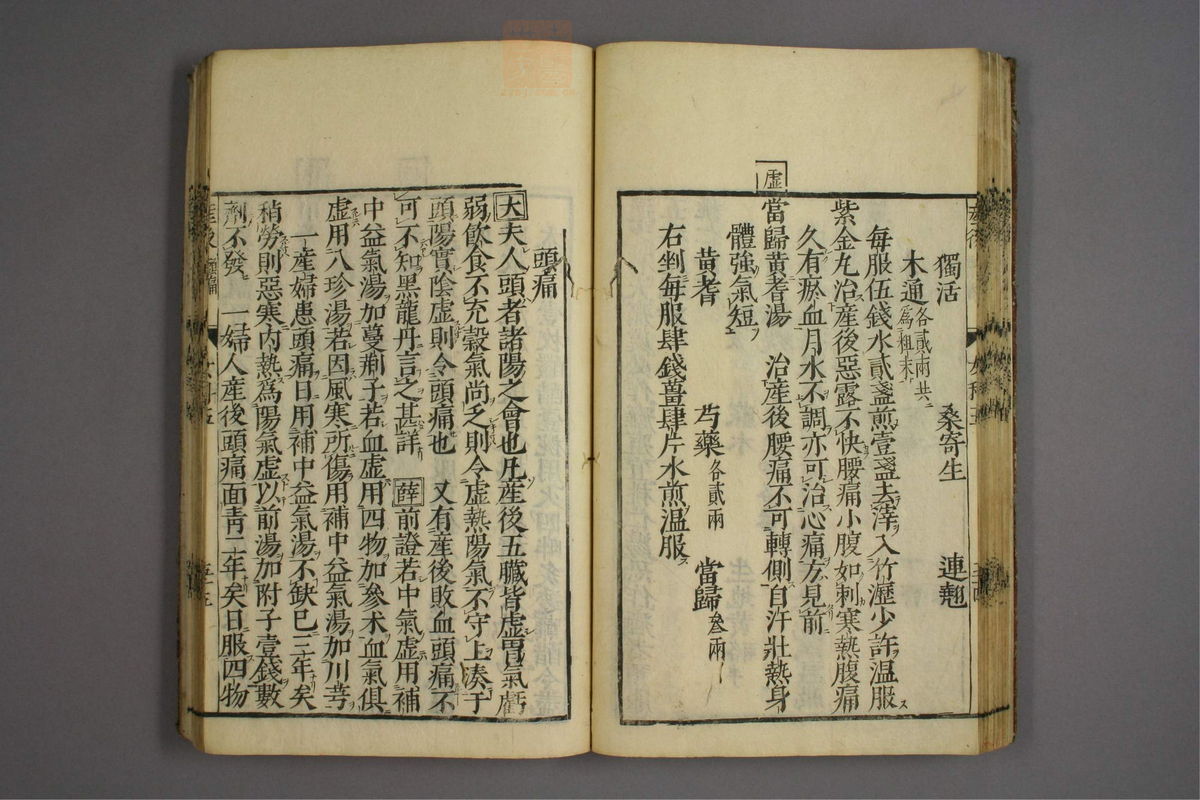 獨活 桑寄生 連翹
木通各貳兩共爲粗末
每服伍錢水貳盞煎壹盞去滓入竹瀝少許溫服
紫金丸治產後惡露不快腰痛小腹如刺寒熱腹痛
久有瘀血月水不調亦可治心痛方見前
虛
當歸黃耆湯 治產後腰痛不可轉側自汗壯熱身
體強氣短
黃耆 芍藥各貳兩 當歸叄兩
右剉每服肆錢薑肆片水煎溫服
頭痛
大夫人頭者諸陽之會也凡產後五臟皆虛胃氣虧
弱飲食不充穀氣尚乏則令虛熱陽氣不守上湊于
頭陽實陰虛則令頭痛也 又有產後敗血頭痛不
可不知黑龍丹言之甚詳 薛前證若中氣虛用補
中益氣湯加蔓荊子若血虛用四物加參朮血氣俱
虛用八珍湯若因風寒所傷用補中益氣湯加川芎
一產婦患頭痛日用補中益氣湯不缺已三年矣
稍勞則惡寒內熱爲陽氣虛以前湯加附子壹錢數
劑不發 一婦人產後頭痛面靑二年矣日服四物